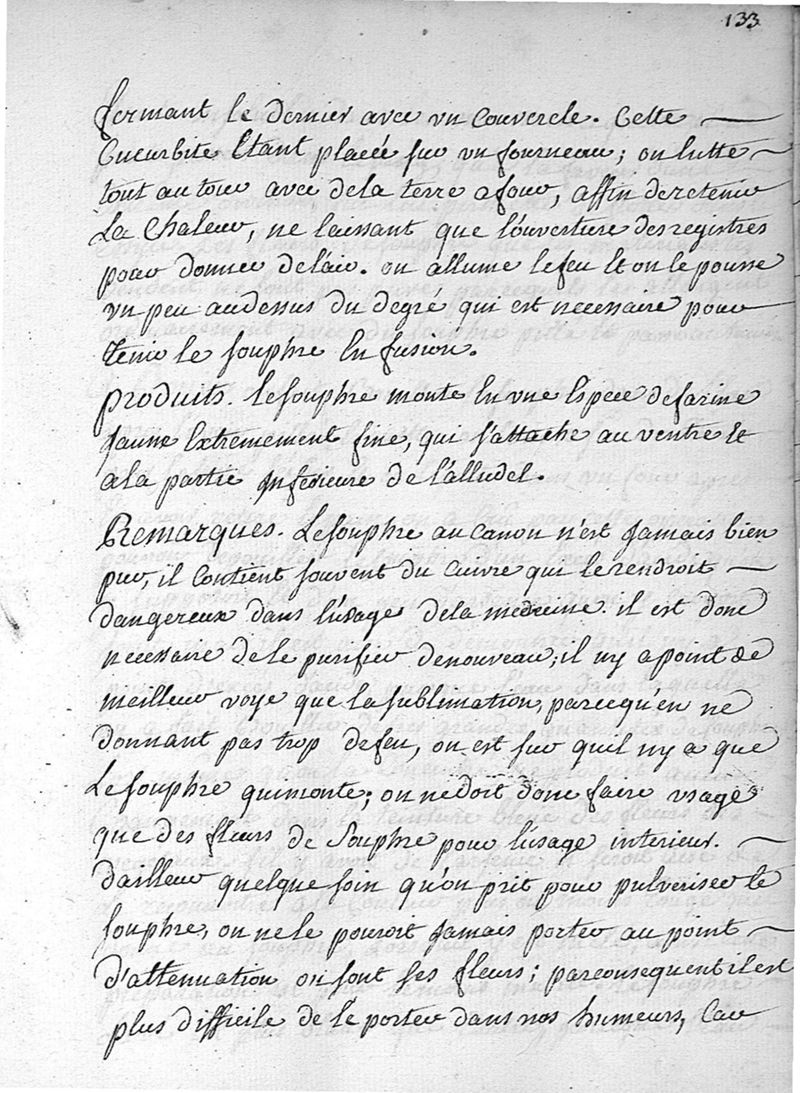 133
fermant le dernier avec un couvercle. Cette
Cucurbite Etant placée sur un fourneau; on lutte
tout autour avec de la terre a four, affin de retenir
La Chaleur, ne laissant que l'ouverture des registres
pour donner de l'air. on allume le feu Et on le pousse
un peu audessus du degré qui est necessaire pour
tenir le souphre En fusion.
produits. le souphre monte En une Espece de farine
jaune Extremement fine, qui s'attache au ventre Et
a la partie inferieure de l'alludel.
Remarques. Le souphre au canon n'est jamais bien
pur, il contient souvent du cuivre qui le rendroit
dangereux dans l'usage de la medecine. il est donc
necessaire de le purifier de nouveau; il ny a point de
meilleur voye que la sublimation, parcequ'en ne
donnant pas trop de feu, on est sur quil ny a que
Le souphre qui monte; on ne doit donc faire usage
que des fleurs de souphre pour l'usage interieur.
dailleur quelque soin qu'on prit pour pulveriser le
souphre, on ne le pouroit jamais porter au point
d'attenuation ou sont ses fleurs; par consequent il est
plus difficile de le porter dans nos humeurs, Car